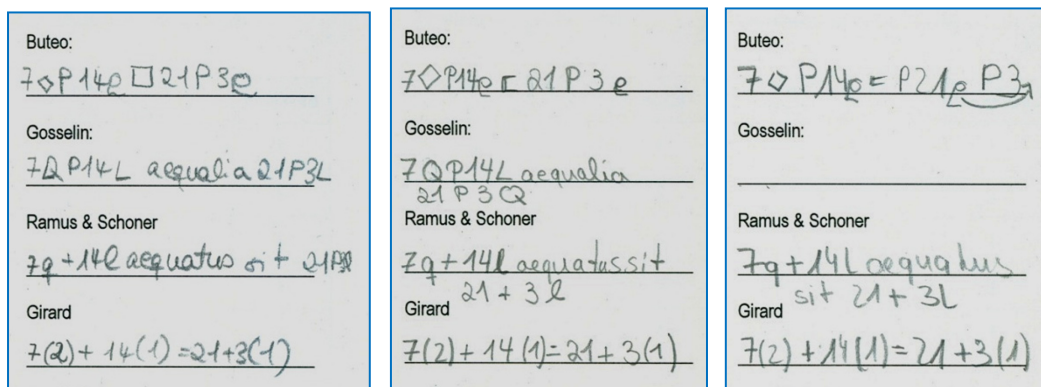 Buteo:
7◇P14ϱ □ 21P3ϱ
Gosselin:
7Q P14L aequalia 21P3L
Ramus & Schoner
7q + 14l aequatus sit 21P3l
Girard
7(2) + 14(1) = 21+3(1)
Buteo:
7◇P14ϱ [ 21 P 3 ϱ
Gosselin:
7QP14L aequalia
21 P 3 Q
Ramus & Schoner
7q + 14l aequatus sit
21 + 3 l
Girard
7(2) + 14(1) = 21 + 3(1)
Buteo:
7 ◇ P14ϱ = P21ϱ P3
Gosselin:
Ramus & Schoner
7q + 14L aequatus
sit 21 + 3L
Girard
7(2) + 14(1) = 21 + 3(1)